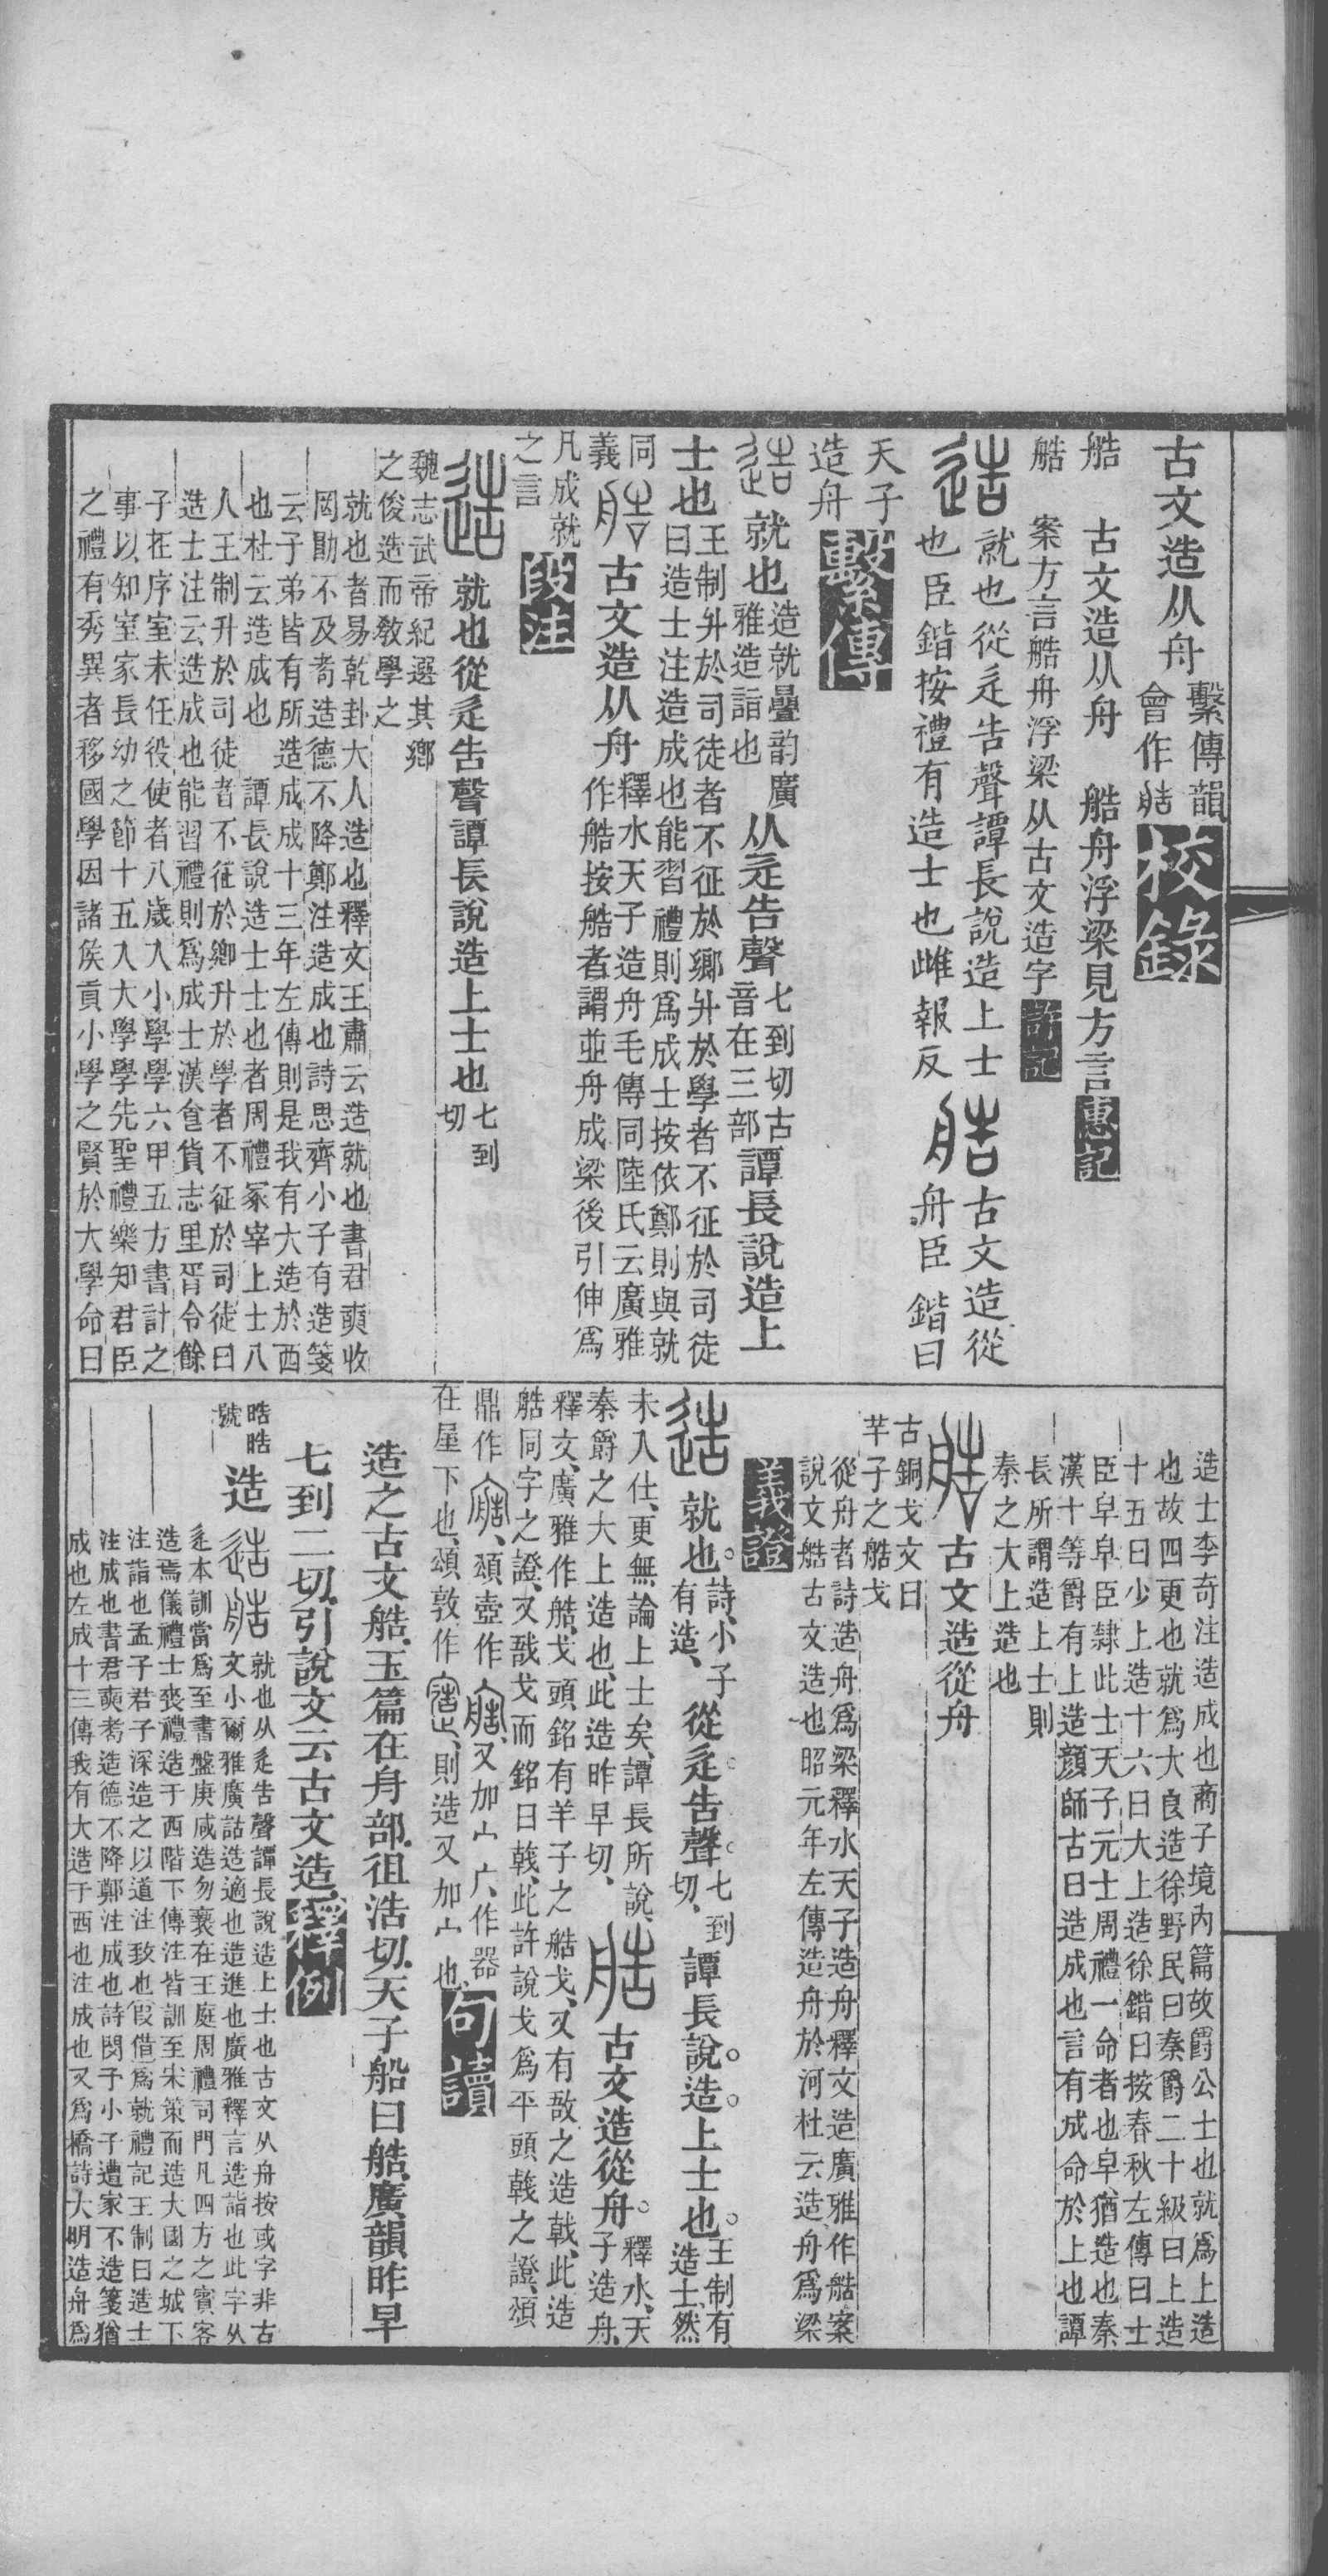 古文造从舟繫傳韻
會作艁校錄
艁　古文造从舟　艁舟浮梁見方言惠記
艁　案方言艁舟浮梁从古文造字許記
就也從辵告聲譚長說造上士　古文造從
也臣鍇按禮有造士也雌報反　舟臣鍇曰
天子
造舟繫傳
就也造就疊韵廣
雅造詣也从辵告聲七到切古
音在三部譚長說造上
士也王制升於司徒者不征於鄉升於學者不征於司徒
曰造士注造成也能習禮則爲成士按依鄭則與就
同
義　古文造从舟釋水天子造舟毛傳同陸氏云廣雅
作艁按艁者謂並舟成梁後引伸爲
凡成就
之言段注
就也從辵告聲譚長說造上士也七到
切
魏志武帝紀選其鄉
之俊造而敎學之
就也者易乾卦大人造也釋文王肅云造就也書君奭收
罔勖不及耇造德不降鄭注造成也詩思齊小子有造箋
云子弟皆有所造成成十三年左傳則是我有大造於西
也杜云造成也　譚長說造士士也者周禮冢宰上士八
人王制升於司徒者不征於鄉升於學者不征於司徒曰
造士注云造成也能習禮則爲成士漢食貨志里胥令餘
子在序室未任役使者八歲入小學學六甲五方書計之
事以知室家長幼之節十五入大學學先聖禮樂知君臣
之禮有秀異者移國學因諸侯貢小學之賢於大學命曰
造士李奇注造成也商子境內篇故爵公士也就爲上造
也故四更也就爲大良造徐野民曰秦爵二十級曰上造
十五曰少上造十六曰大上造徐鍇曰按春秋左傳曰士
臣皁皁臣隸此士天子元士周禮一命者也皁猶造也秦
漢十等爵有上造顏師古曰造成也言有成命於上也譚
長所謂造上士則
秦之大上造也
古文造從舟
古銅戈文曰
芊子之艁戈
從舟者詩造舟爲梁釋水天子造舟釋文造廣雅作艁案
說文艁古文造也昭元年左傳造舟於河杜云造舟爲梁
義證
就也。詩、小子
有造、從辵。告聲。七到
切、譚長說。造。上士也。王制有
造士、然
未入仕、更無論上士矣、譚長所說、
秦爵之大上造也、此造昨早切、古文造從舟。釋水、天
子造舟、
釋文、廣雅作艁、戈頭銘有羊子之艁戈、又有敔之造戟、此造
艁同字之證、又敔戈而銘曰戟、此許說戈爲平頭戟之證、頌
鼎作、頌壺作、又加宀、作器
在屋下也、頌敦作、則造又加宀也、句讀
造之古文艁、玉篇在舟部、徂浩切、天子船曰艁、廣韻昨早
七到二切、引說文云古文造、釋例
晧晧
號　造就也从辵告聲譚長說造上士也古文从舟按或字非古
文小爾雅廣詁造適也造進也廣雅釋言造詣也此字从
辵本訓當爲至書盤庚咸造勿褻在王庭周禮司門凡四方之賓客
造焉儀禮士喪禮造于西階下傳注皆訓至宋策而造大國之城下
注詣也孟子君子深造之以道注致也叚借爲就禮記王制曰造士
注成也書君奭耇造德不降鄭注成也詩閔予小子遭家不造箋猶
成也左成十三傳我有大造于西也注成也又爲橋詩大明造舟爲